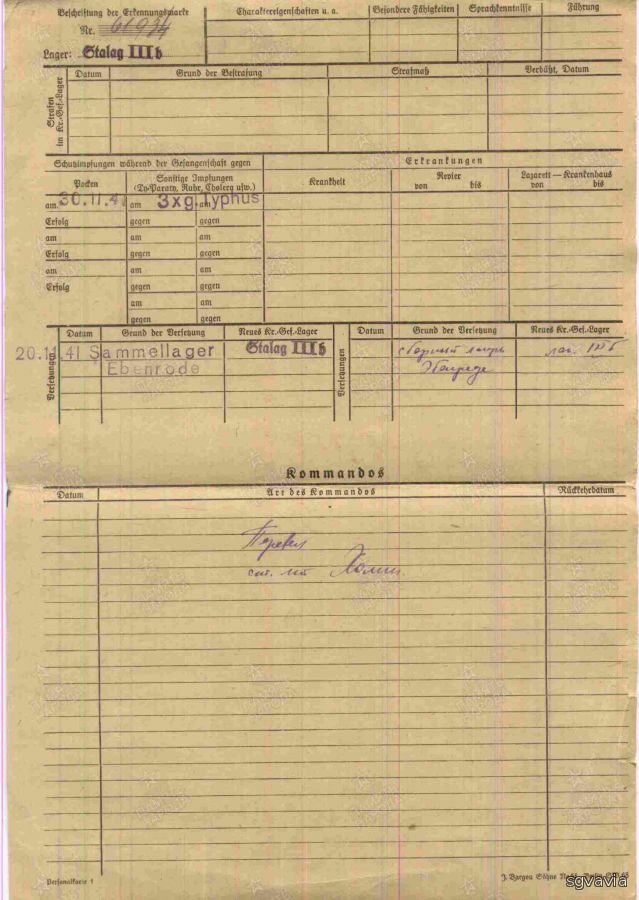 Beschriftung der Erkennungsmarke
Nr. 61934
Lager: Stalag III b
Charaktereigenschaften u. a.
Besondere Fähigkeiten
Sprachkenntnisse
Führung
Strafen im Kr.-Gef.-Lager
Datum
Grund der Bestrafung
Strafmaß
Verbüßt, Datum
Schutzimpfungen während der Gefangenschaft gegen
Erkrankungen
Pocken
Sonstige Impfungen
(Ty-Paraty, Ruhr, Cholera usw.)
Krankheit
Revier
von bis
Lazarett — Krankenhaus
von bis
am 30.11.41 am 3xg. am Typhus
Erfolg gegen gegen
am am am
Erfolg gegen gegen
am am am
Erfolg gegen gegen
am am
gegen gegen
Versetzungen
Datum Grund der Versetzung Neues Kr.-Gef.-Lager
20.11.41 Sammellager Stalag III b
Ebenrode
Versetzungen
Datum Grund der Versetzung Neues Kr.-Gef.-Lager
сборный лагерь лаг. III б
Эбенроде
Kommandos
Datum Art des Kommandos Rückkehrdatum
Перевел
Personalkarte 1
sgvavia